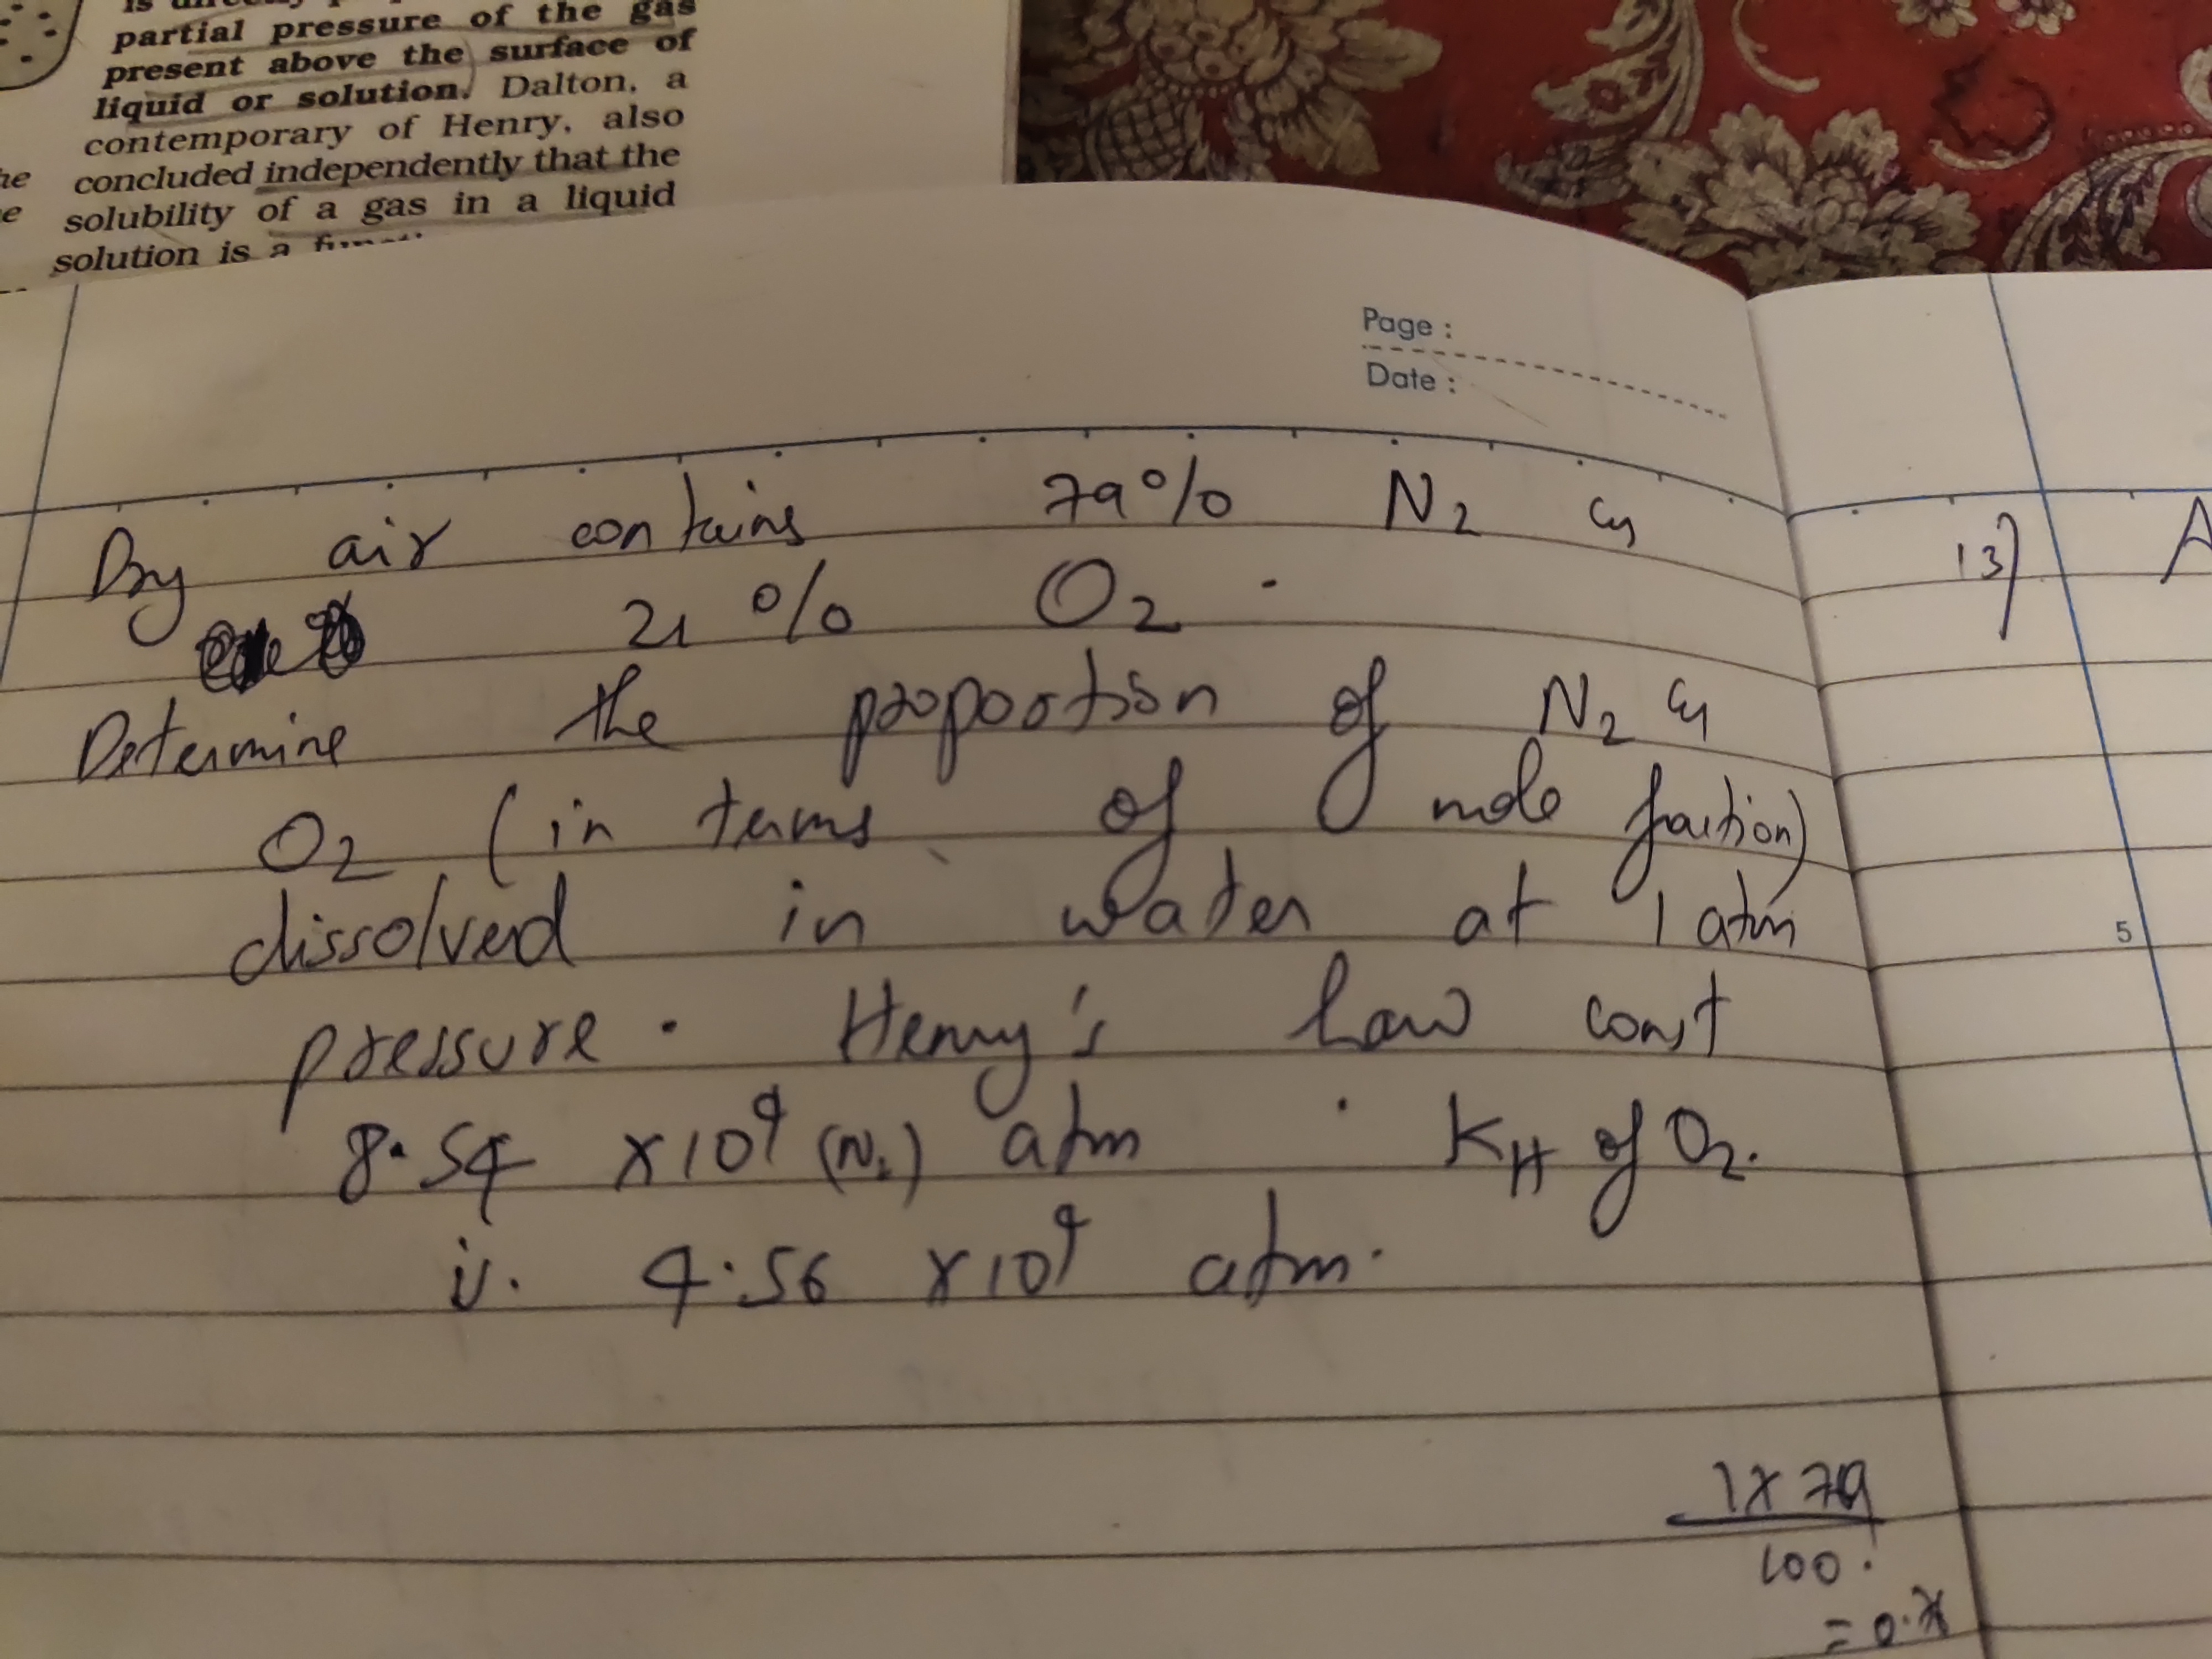 partial pressure of the gas
present above the surface of
liquid or solution. Dalton, a
contemporary of Henry, also
concluded independently that the
solubility of a gas in a liquid
solution is a
Page :
Date :
Dry air contains 79% N2 &
21 % O2.
Determine the proportion of N2 &
O2 (in terms of mole fraction)
dissolved in water at 1 atm
pressure. Henry's Law const
8.54 x 10⁴ (N2) atm. KH of O2.
is. 4.56 x 10⁴ atm.
1 x 79
100
= 0.
13) A
5